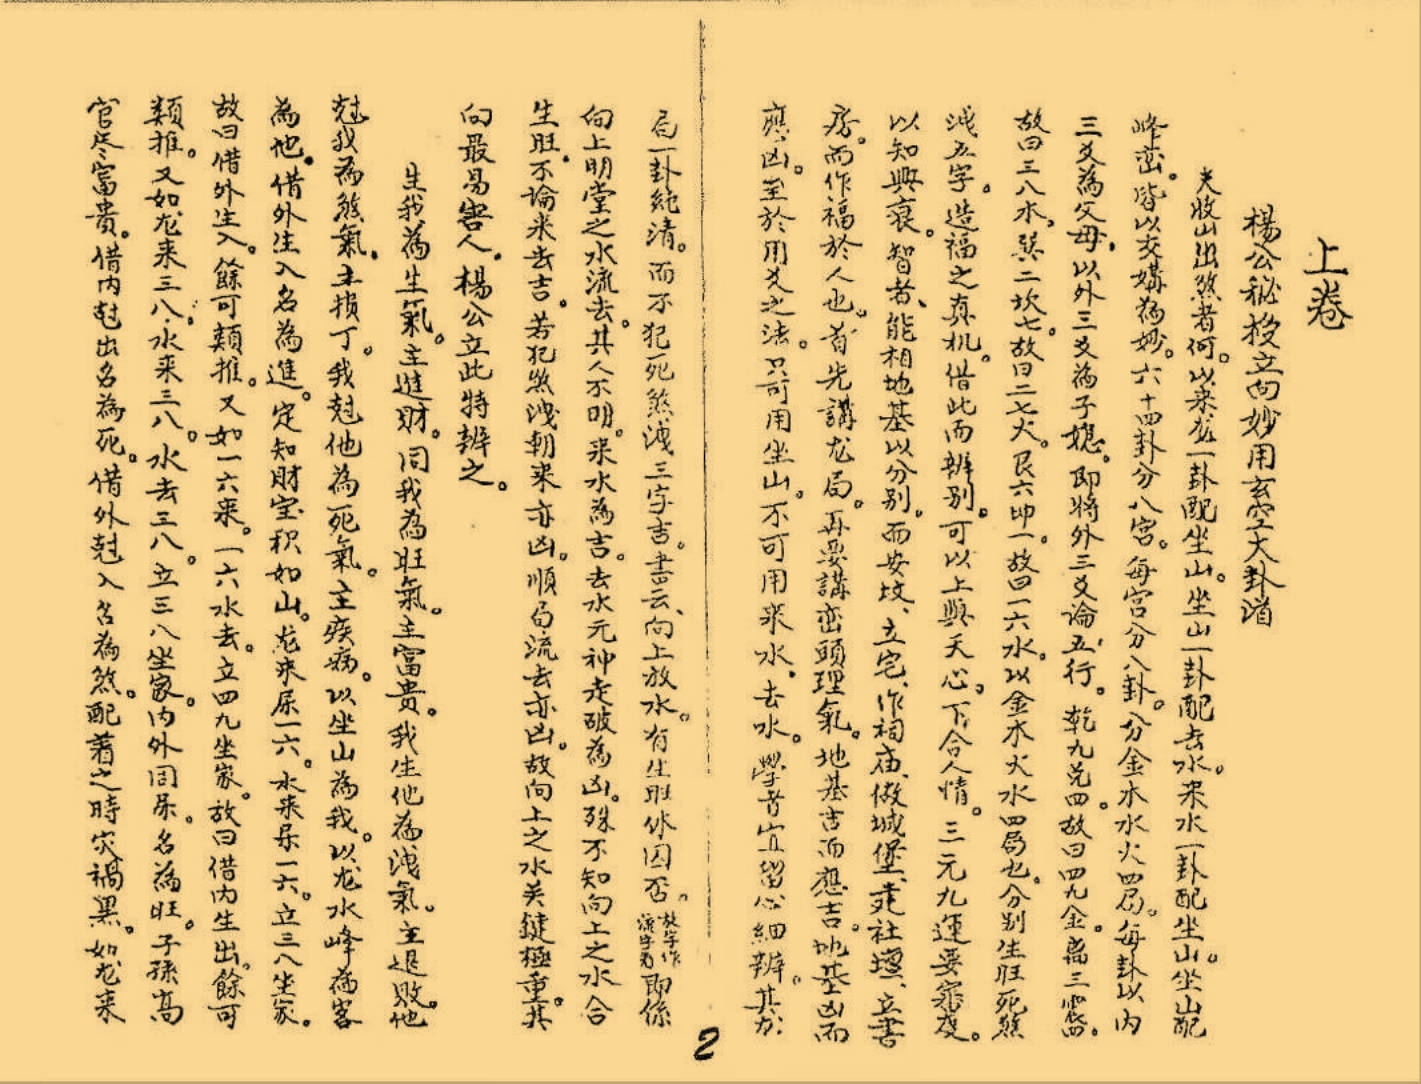 上卷
楊公秘授立向妙用玄空大卦道
夫收山出煞者何。以来龙一卦配坐山。坐山一卦配去水。来水一卦配坐山。坐山配
峰峦。皆以交媾為妙。六十四卦分八宮。每宮分八卦。八分金木水火四局。每卦以内
三爻為父母。以外三爻為子媳。即將外三爻論五行。乾九兌四。故曰四九金。离三震
故曰三八木。巽二坎七。故曰二七火。艮六坤一。故曰一六水。以金木火水四局也。分别生旺死煞
洩五字。造福之真机。借此而辨别。可以上與天心。下合人情。三元九運要
以知興衰。智者、能相地基以分别。而安坟、立宅、作祠庙、做城堡、建社壇、立書
房。而作福於人也。首先講龙局。再要講峦頭理氣。地基吉而應吉。地基凶而
應凶。至於用爻之法。只可用坐山。不可用来水。去水。學者宜留心細辨。其为
局一卦純清。而不犯死煞洩三字吉。書云、向上放水。有生旺休囚否。放字作流字看即係
向上明堂之水流去。其人不明。来水為吉。去水元神走破為凶。殊不知向上之水合
生旺。不論来去吉。若犯煞洩朝来亦凶。順局流去亦凶。故向上之水关鍵極重。其
向最易害人。楊公立此特辨之。
生我為生氣。主進財。同我為旺氣。主富貴。我生他為洩氣。主退敗。他
尅我為煞氣。主損丁。我尅他為死氣。主疾病。以坐山為我。以龙水峰為客
為他。借外生入名為進。定知財宝积如山。龙来属一六。水来属一六。立三八坐家。
故曰借外生入。餘可類推。又如一六来。一六水去。立四九坐家。故曰借内生出。餘可
類推。又如龙来三八。水来三八。水去三八。立三八坐家。内外同属。名為旺。子孫高
官尽富貴。借内尅出名為死。借外尅入名為煞。配着之時灾禍黑。如龙来
2